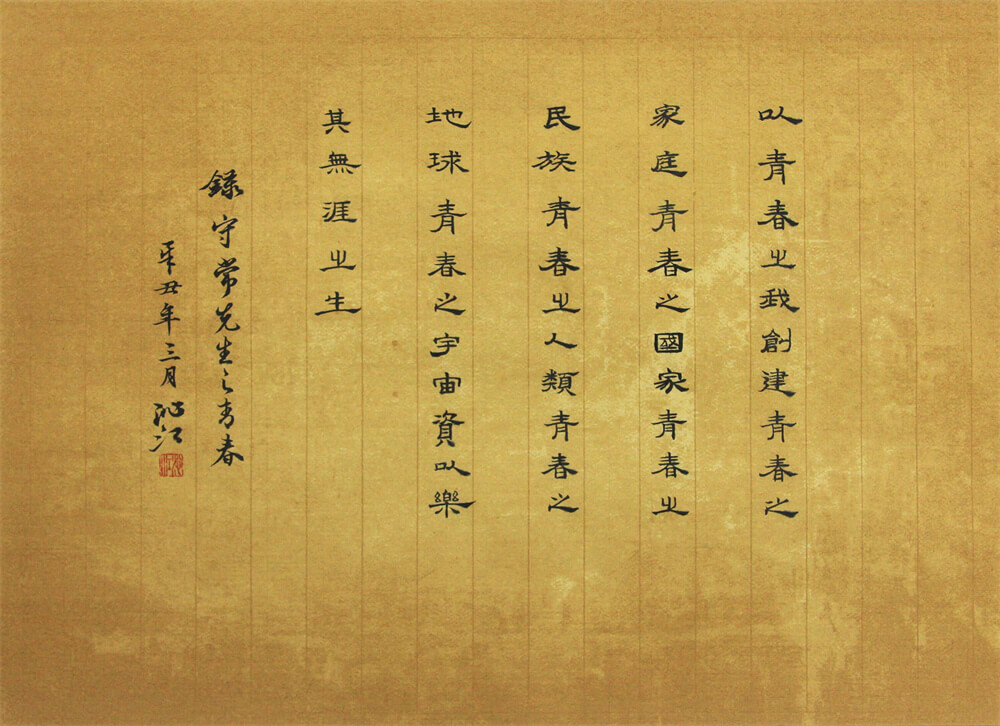 以青春之我創建青春之
家庭青春之國家青春之
民族青春之人類青春之
地球青春之宇宙資以樂
其無涯之生
錄守常先生之青春
辛丑年三月 沁江